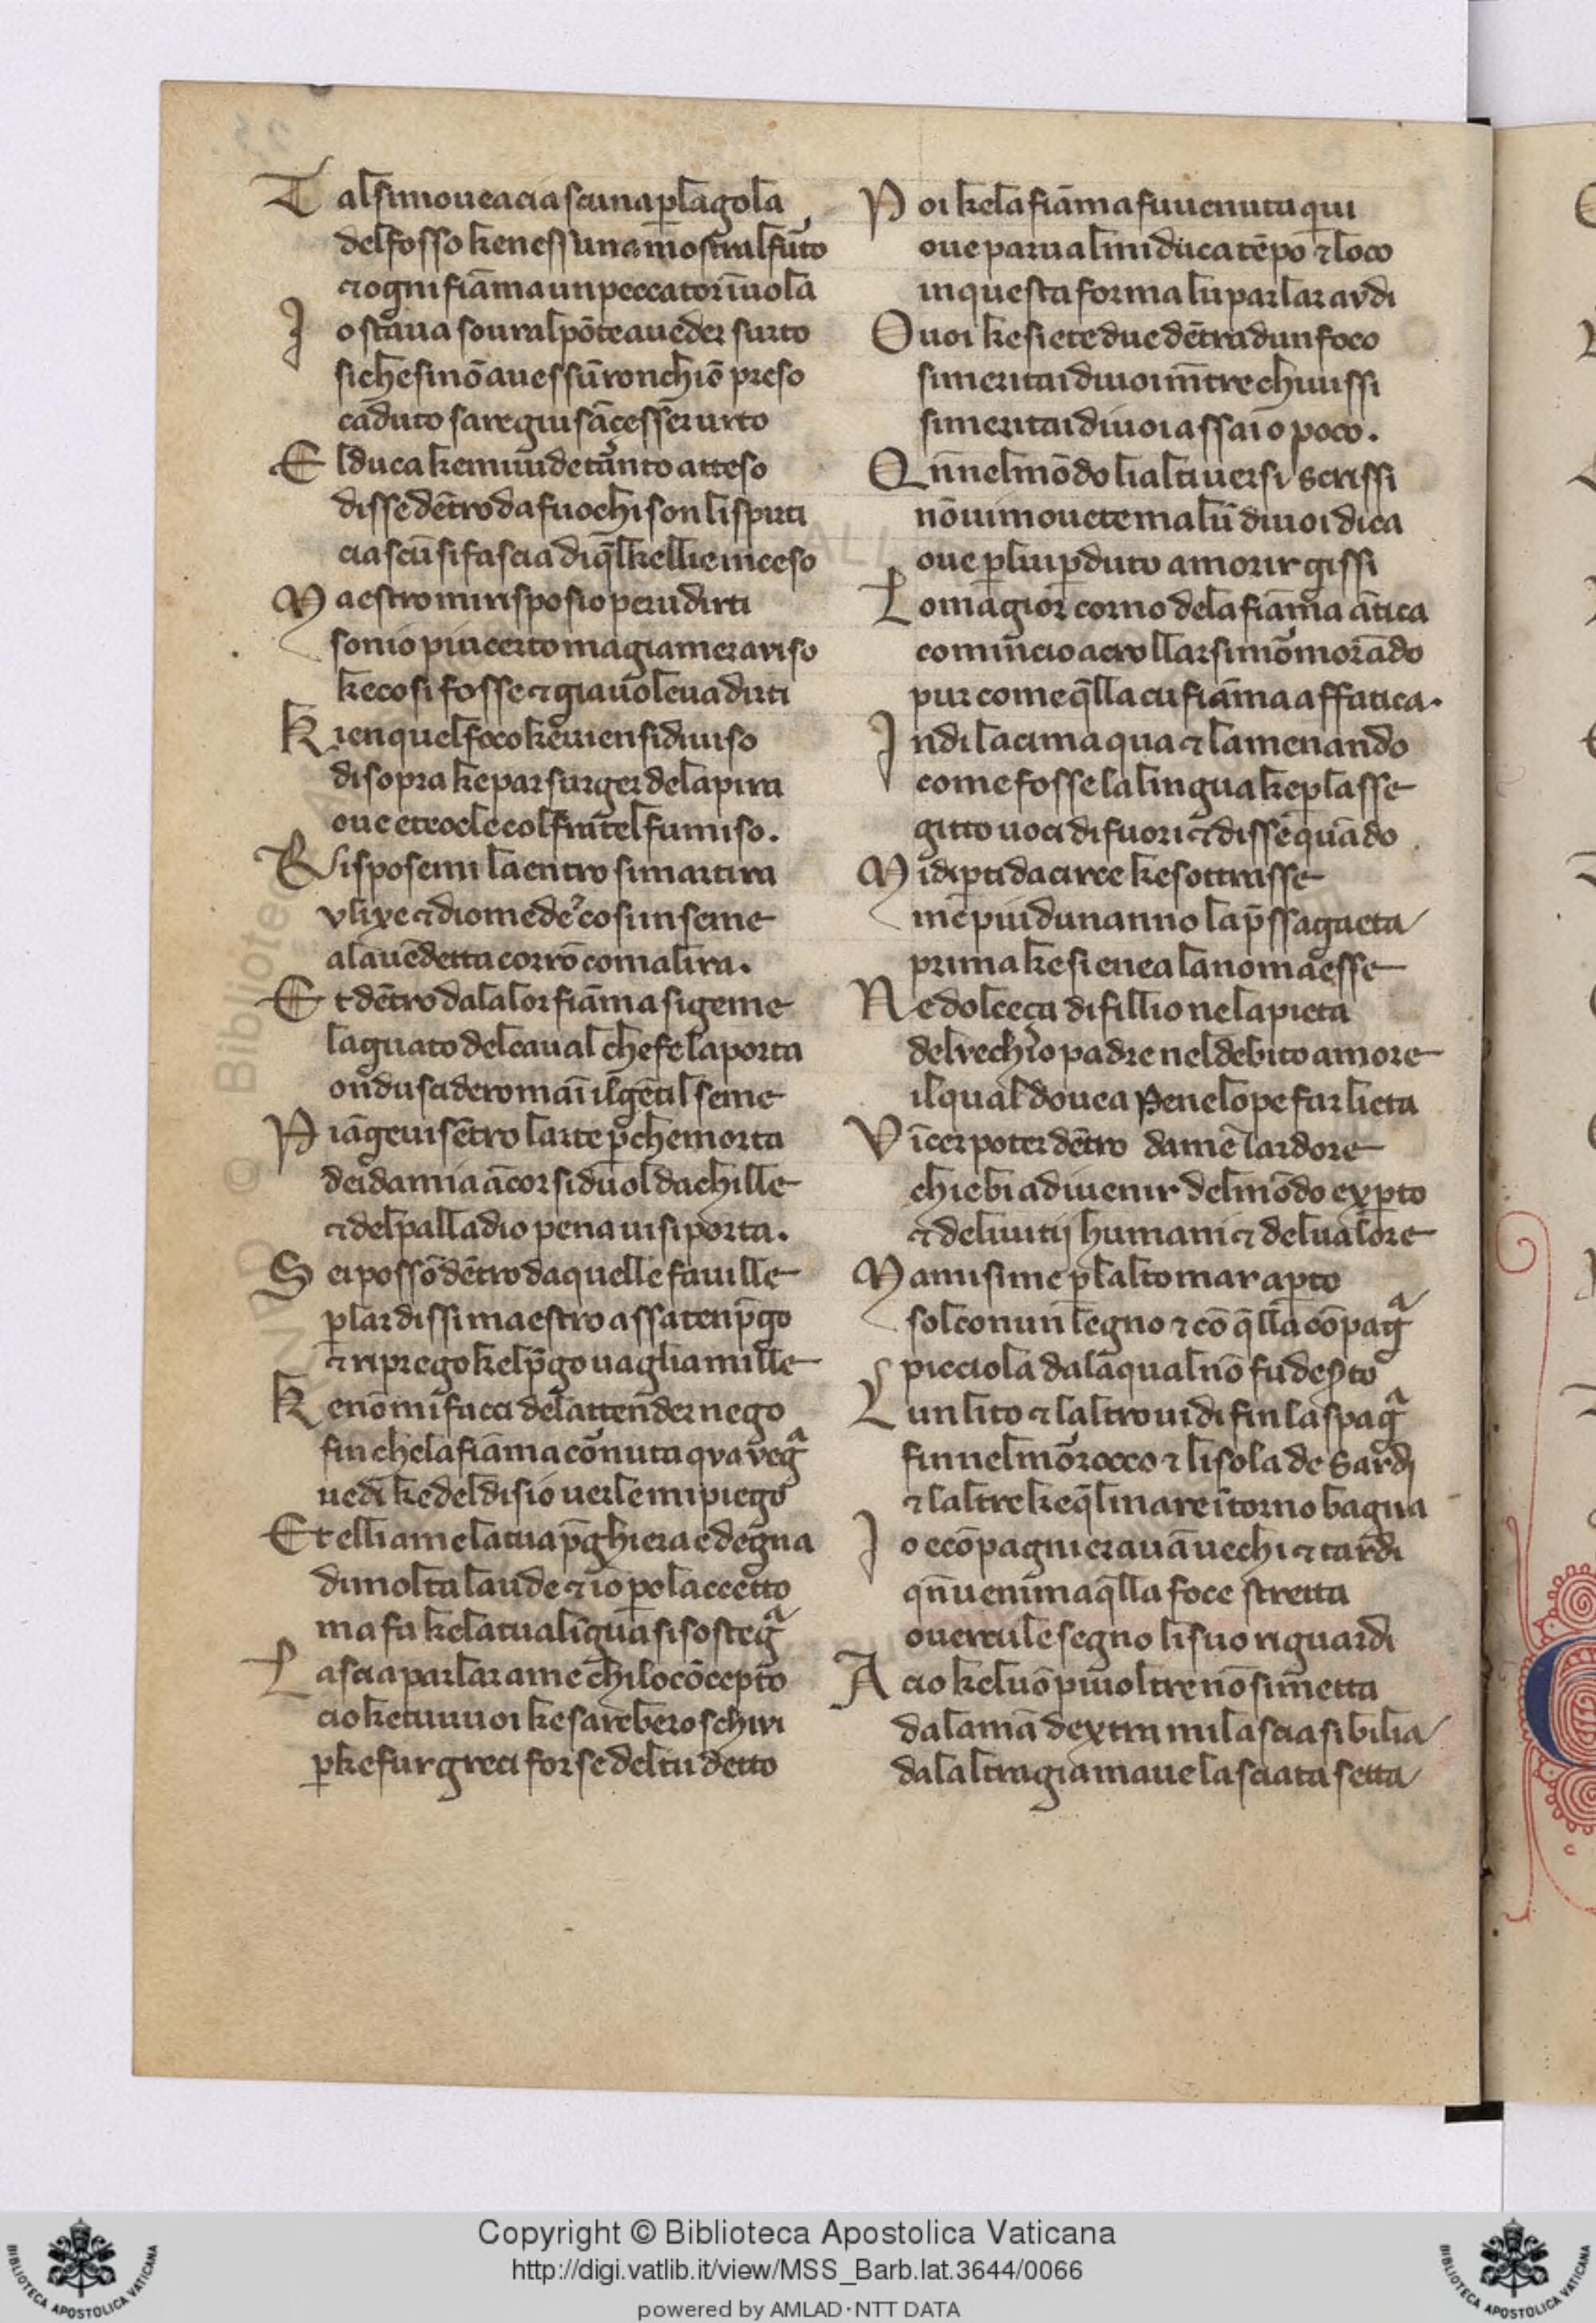 Tal si moue ciascuna p la gola
del fosso ke nessuna mostral furto
et ogni fiāma un peccatore īuola
Io staua soura l pōte a ueder surto
si che s i nō auessū ronchiō preso
caduto saregiu sāça esser urto
El duca ke mi uide tanto atteso
disse dētro da fuochi son li spirti
ciascū si fascia di q̄l kelli e inceso
Maestro mi rispos io per udirti
son io piu certo ma gia mera auiso
ke cosi fosse et gia uoleua dirti
Ki en quel foco ke uien si diuiso
di sopra ke par surger de la pira
oue eteocle col fratel fu miso.
Rispose mi la entro si martira
vlixe et diomede cosi inseme
a la uēdetta corrō coma lira.
Et dētro da la lor fiāma si geme
laguato del caual che fe la porta
onduscide romāi il gētil seme
Piāgeuisētro larte p che morta
deidamia ācor si duol dachille
et del palladio pena ui si porta.
Sei possō dētro da quelle fauille
p lar dissi maestro assa ten p̄go
et ripriego kel p̄go uaglia mille
Ke nō mi facci de lattender nego
fin che la fiāma cōnuta qua vegª
uedi ke del disio uer lei mi piego
Et elli a me la tua p̄ghiera e degna
di molta laude et io po laccetto
ma fa ke la tua līgua si sostegª
Lascia parlar a me chi lo cōcepto
cio ke tu uuoi ke sarebero schiui
p ke fur greci forse del tu detto
Poi ke la fiāma fu uenuta qui
oue parua al mi duca tēpo et loco
in questa forma lui parlar audi
O uoi ke siete due dētro ad un foco
si meritai di uoi mētre chi uissi
si meritai di uoi assai o poco.
Qn̄ nel mōdo li alti uersi scrissi
nō ui mouete ma lū di uoi dica
oue p lui pduto a morir gissi
Lo magior corno de la fiāma ātica
comincio a crollarsi mormorādo
pur come q̄lla cui fiāma affatica.
Indi la cima qua et la menando
come fosse la lingua ke plasse
gitto uoci di fuori et disse quādo
Mi diparti da circe ke sottrasse
me piu dun anno la p̄sso a gaeta
prima ke si enea la nomaesse
Ne dolceça di fillio ne la pieta
del vechio padre nel debito amore
il qual douea Penelope far lieta
Vīcer poter dētro da me lardore
chi ebi a diuenir del mōdo experto
et de li uitij humani et del ualore
Ma misi me p lalto mar apto
sol con un legno et cō q̄lla cōpagª
picciola da la qual nō fu desto
Lun lito et laltro uidi fin la spagª
fin nel morrocco et lisola de Sardi
et laltre ke q̄l mare ītorno bagna
Io e cōpagni erauā uechi et tardi
qn̄ uenīma q̄lla foce stretta
ouercule segno li suo riguardi
A cio ke luō piu oltre nō si metta
da la mā dextra mi lascia sibilia
da laltra gia maue lasciata setta
Copyright © Biblioteca Apostolica Vaticana
http://digi.vatlib.it/view/MSS_Barb.lat.3644/0066
powered by AMLAD·NTT DATA